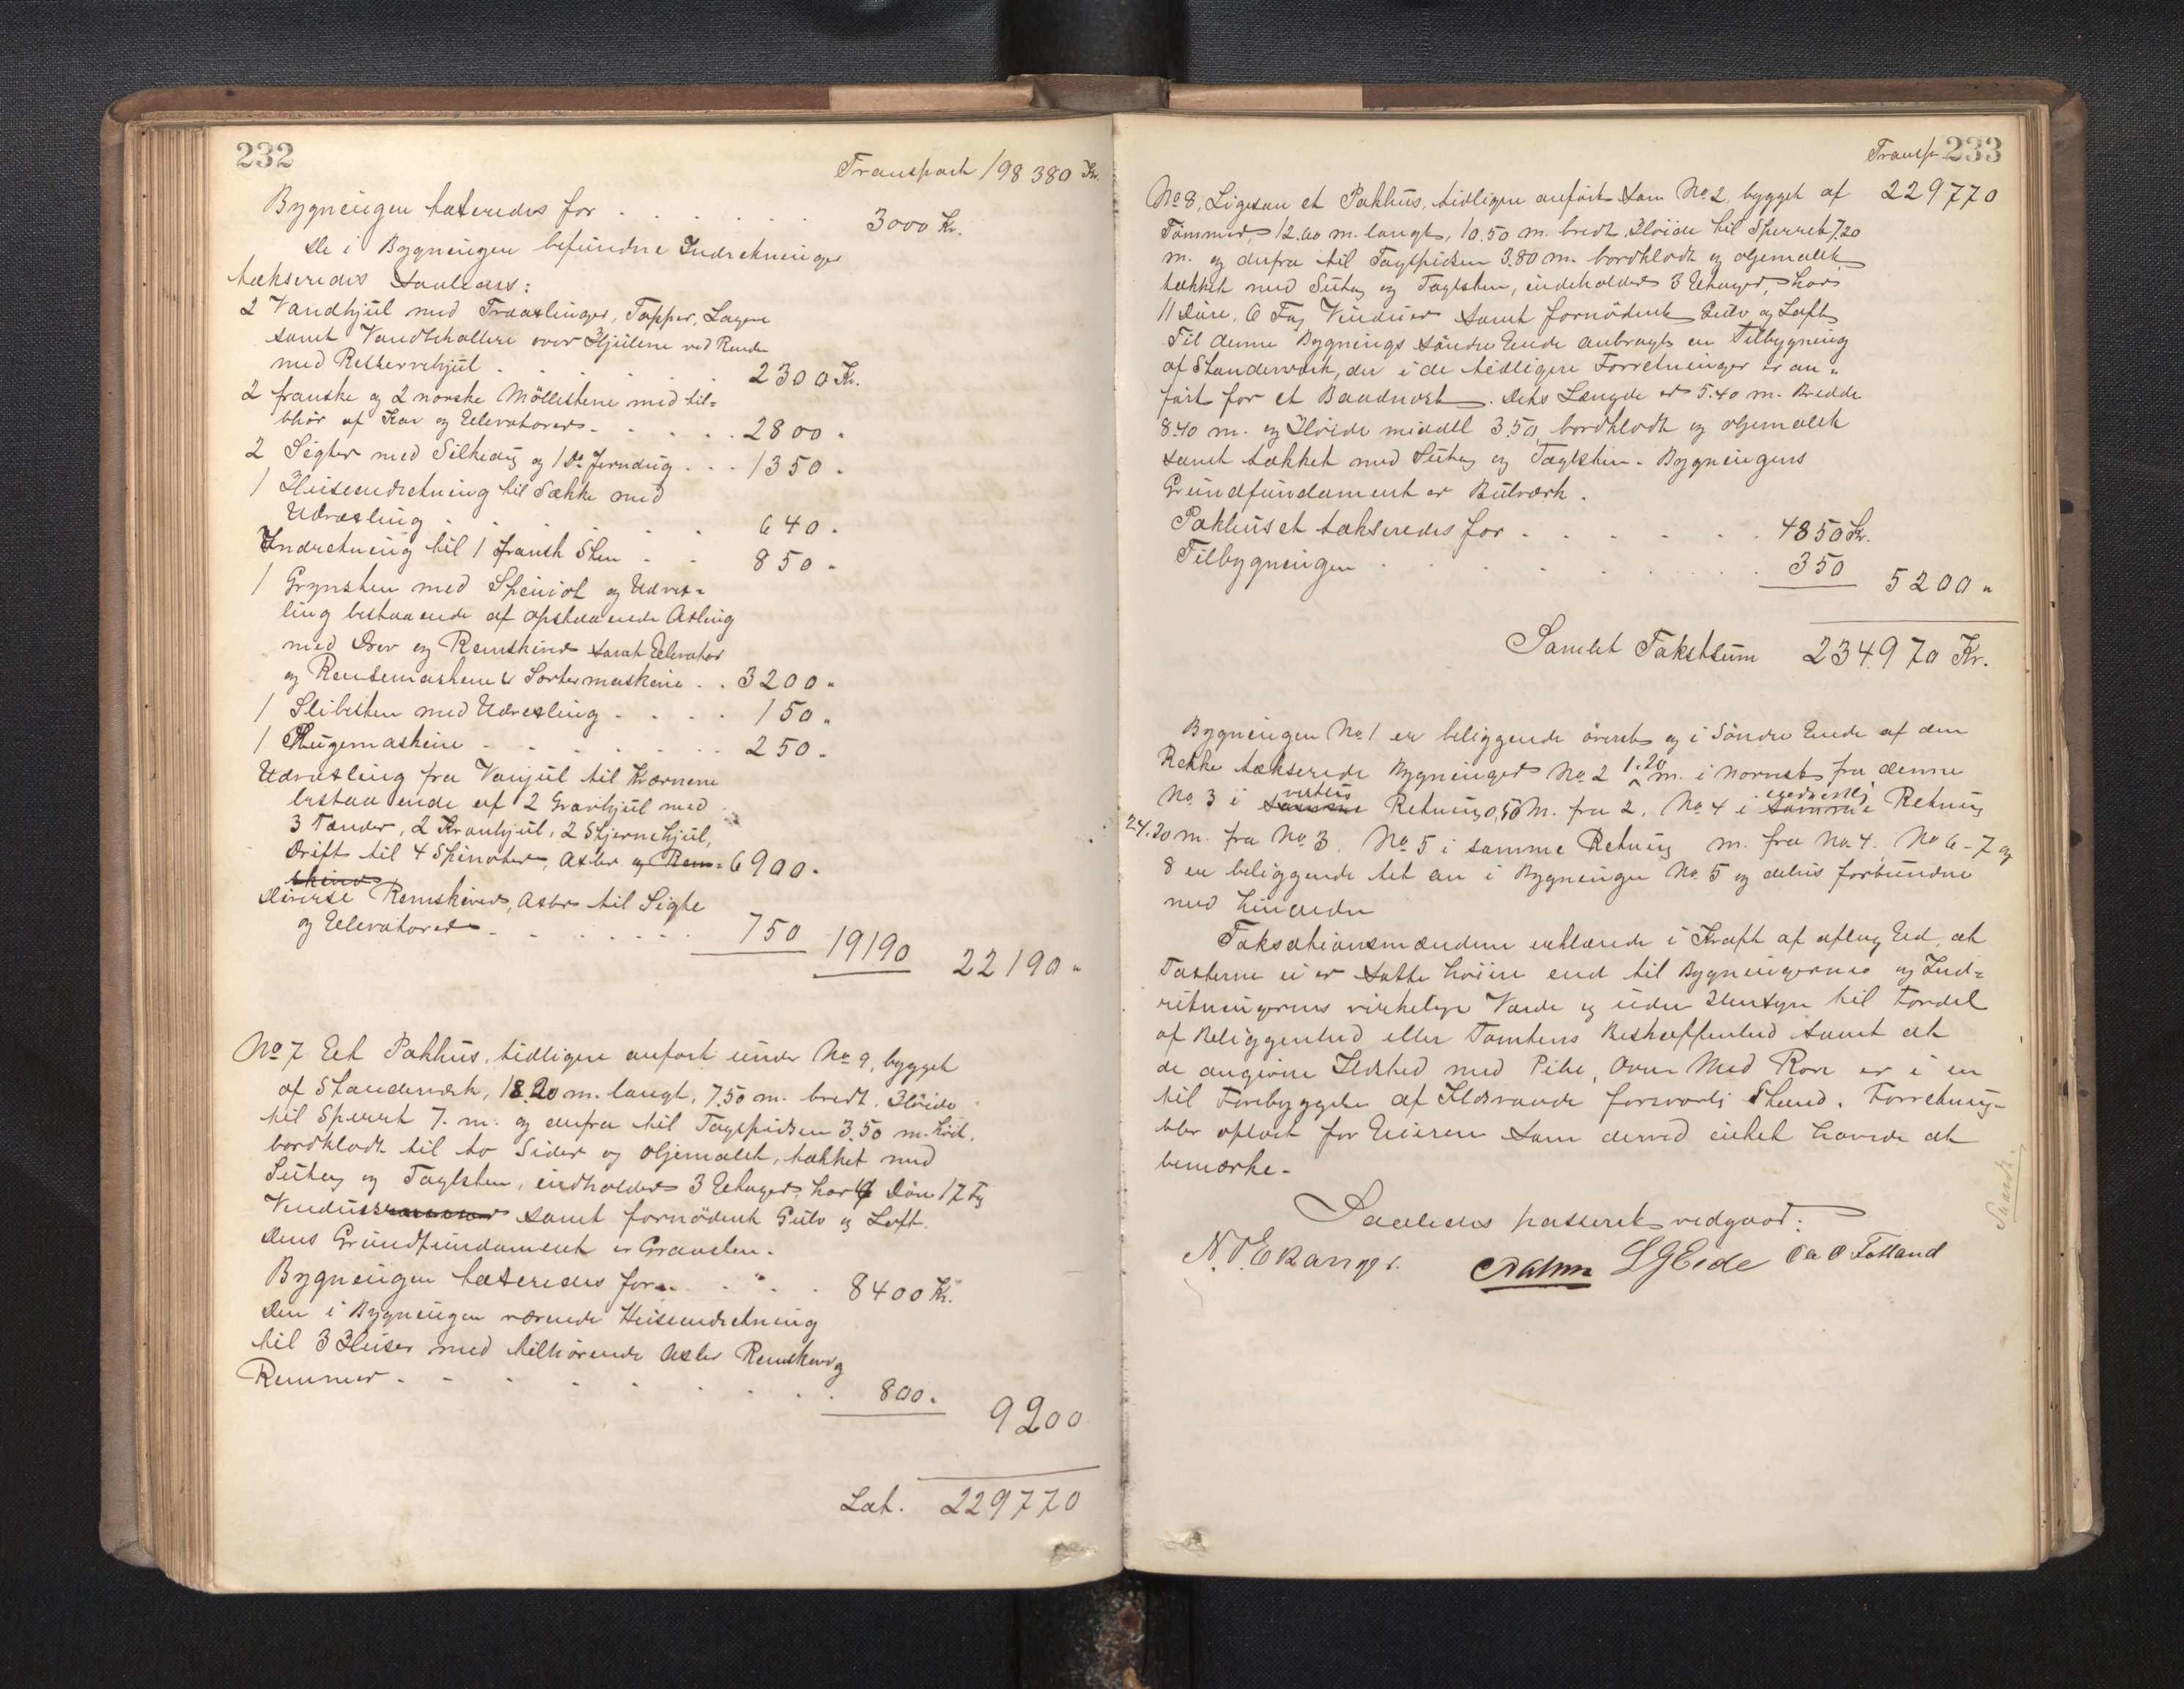 232
Transport 198 380 Kr.
Bygningen taxeredes for . . . . . . 3000 Kr.
De i Bygningen befundne Indretninger
takseredes saaledes:
2 Vandhjul med Træaxlinger, Tapper, Lagere
samt Vandbeholdere over Hjulene ved Render
med Reservehjul . . . . . 2300 Kr.
2 franske og 2 norske Möllestene med til=
behör af Kar og Elevatorer . . . . 2800 "
2 Sigter med Silkedug og 1 Do Jerndug . . . 1350 "
1 Heiseindretning til Sække med
Udvexling . . . . . 640 "
Indretning til 1 fransk Sten . . 850 "
1 Grynsten med Spindel og Udvex=
ling bestaaende af opstaaende Axling
med Drev og Remskiver samt Elevator
og Rensemaskine & Sortermaskine . . 3200 "
1 Slibesten med Udvexling . . . . 150 "
1 Rugemaskine . . . . . . 250 "
Udvexling fra Vanjul til Kværnene
bestaaende af 2 Gravhjul med
3 Tænder, 2 Kronhjul, 2 Stjernehjul,
Drift til 4 Spinoler, Axler og Rem= 6900 "
skiver
diverse Remskiver, Axler til Sigte
og Elevatorer . . . . . . 750 19190 22190 "
No 7 Eet Pakhus, tidligere anfört under No 9, bygget
af Standerværk, 18.20 m. langt, 7.50 m. bredt. Höide
til Sperret 7. m. og derfra til Tagspidsen 3.50 m. höit,
bordklædt til to Sider og oljemalet, tækket med
Sutag og Taglsten, indholder 3 Etager, har 4 Döre 17 Fg
Vinduer samt fornödent Gulv og Loft.
Dens Grundfundament er Graasten.
Bygningen taxeredes for . . " . . 8400 Kr.
Den i Bygningen værende Heiseindretning
til 3 Heiser med tilhörende Axler Remskiver og
Remmer . . . . . . . . 800 " 9200
Lat. 229770
Transp. 233
No 8, Ligesaa et Pakhus, tidligere anfört som No 2, bygget af 229770
Tömmer, 12.00 m. langt, 10.50 m. bredt. Höide til Sperret 7.20
m. og derfra til Tagspidsen 3.80 m. bordklædt og oljemalet,
tækket med Sutag og Taglsten, indeholder 3 Etager, har
11 Döre, 6 Fag Vinduer samt fornödent Gulv og Loft
Til denne Bygnings söndre Ende anbragt en Tilbygning
af Standerværk, der i de tidligere Forretninger er an=
fört for et Baadnöst. Dets Længde er 5.40 m. Bredde
8.40 m. og Höide middel 3.50, bordklædt og oljemalet
samt tækket med Sutag og Taglsten. Bygningens
Grundfundament er Bulværk.
Pakhuset takseredes for . . . . . . 4850 Kr.
Tilbygningen . . . . . . . 350 5200 "
Samlet Takstsum 234970 Kr.
Bygningen No 1 er beliggende överst og i Söndre Ende af den
Rekke takserede Bygninger No 2 1.20 m. i Nornest fra denne
No 3 i samme vestlig Retning 0,50 M. fra 2. No 4 i samme Retning
24.20 m. fra No 3. No 5 i samme Retning m. fra No 4. No 6 - 7 og
8 er beliggende tet an i Bygningen No 5 og delvis forbundne
med hinanden
Taksationsmændene erklærede i Kraft af aflag Eed, at
Taxterne ei er satte höiere end til Bygningernes og Ind=
retningernes virkelige Værdi og uden Hensyn til Fordel
af Beliggenhed eller Tomtens Beskaffenhed samt at
de angivne Ildsted med Pibe, Ovn Med Rör er i en
til Forebyggelse af Ildsvaade forsvarlig Stand. Forretning=
blev oplæst for Eieren som derved intet havde at
bemærke.
Saaledes passeret vedgaaes:
N. O. Ekanger. LJEide O a O Fotland